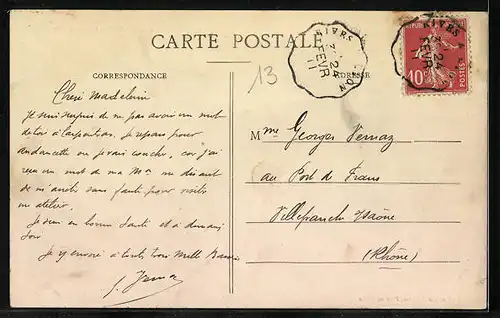 CARTE POSTALE
CORRESPONDANCE
ADRESSE
13
RIVES LYON
24
FEVR
11
10
POSTES
Chère Madeleine
Je suis surpris de ne pas avoir un mot
de toi à Carpentras. Je repars pour
Andancette où je vais coucher, car j'ai
reçu un mot de ma me disant
de m'arrêter sans faute pour visiter
un atelier.
Je suis en bonne santé et à demain
soir.
Je t'envoie à toutes trois mille Baisers
Mme Georges Vernaz
au Port de Frans
Villefranche s/Saône
(Rhône)